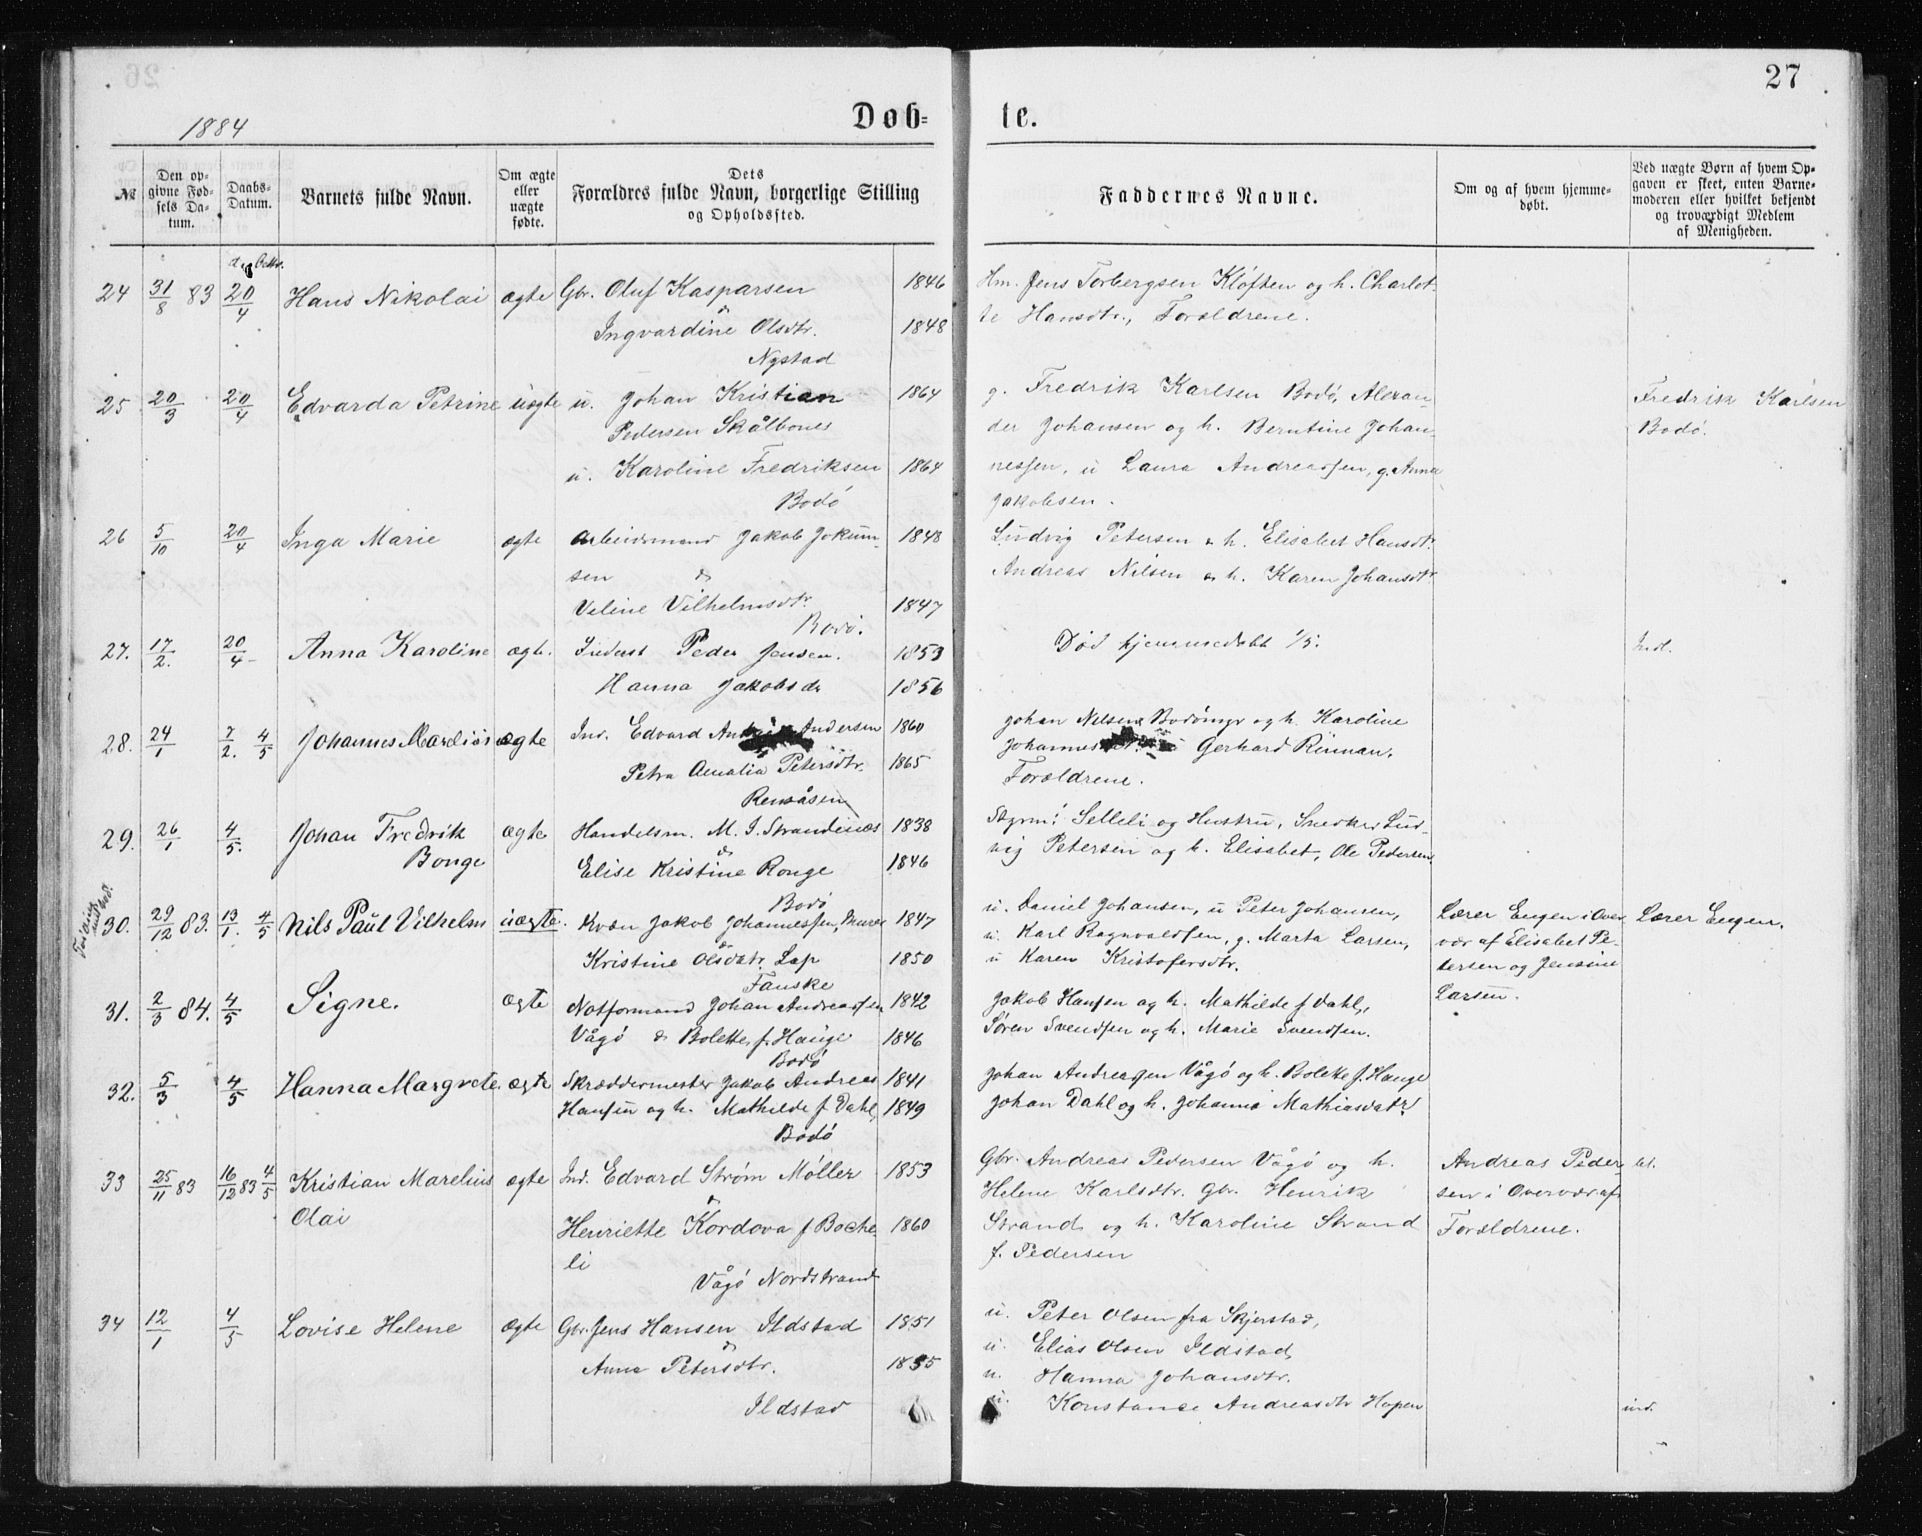 27
1884
Døb-te.
№
Den op-
givne Fød-
sels Da-
tum.
Daabs-
Datum.
Barnets fulde Navn.
Om ægte
eller
uægte
fødte.
Dets
Forældres fulde Navn, borgerlige Stilling
og Opholdssted.
Faddernes Navne.
Om og af hvem hjemme-
døbt.
Ved uægte Børn af hvem Op-
gaven er skeet, enten Barne-
moderen eller hvilket bekjendt
og troværdigt Medlem
af Menigheden.
24 31/8 83 20/4 Hans Nikolai ægte Gbr. Oluf Kasparsen 1846 Hm. Jens Torbergsen Kløften og h. Charlot-
Ingvardine Olsdtr. 1848 te Hansdtr., Forældrene.
Nystad
25 20/3 20/4 Edvarda Petrine uægte u. Johan Kristian 1864 g. Fredrik Karlsen Bodø, Alexan- Fredrik Karlsen
Pedersen Skålbones der Johansen og h. Berntine Johan- Bodø.
u. Karoline Fredriksen 1864 nessen, u Laura Andreassen, g. Anna
Bodø Jakobsen.
26 5/10 20/4 Inga Marie ægte Arbeidsmand Jakob Jokum- 1848 Ludvig Petersen & h. Elisabet Hansdtr.
sen & Andreas Nilsen & h. Karen Johansdtr.
Veline Vilhelmsdtr. 1847
Bodø.
27. 17/2. 20/4 Anna Karoline ægte. Inderst Peder Jensen. 1853 Død hjemmedøbt 1/5. Ind.
Hanna Jakobsdr 1856
28. 24/1 7/2. 4/5 Johannes Marelius ægte Ind. Edvard Andersen 1860 Johan Nilsen Bodømyr og h. Karoline
Petra Amalia Petersdtr. 1865 Johannes Gerhard Rinman.
Rensåsen Forældrene.
29. 26/1 4/5. Johan Fredrik ægte Handelsm. M. J. Strandenæs 1838 Selleli og Hustru, Snedker Lud-
Bonge & vig Petersen og h. Elisabet, Ole Pedersen.
Elise Kristine Ronge 1846
Bodø
30. 29/12 83. 13/1. 4/5 Nils Paul Vilhelm uægte. Kvæn Jakob Johannessen, 1847 u. Daniel Johansen, u Peter Johansen, Lærer Eugen i Over Lærer Eugen.
& u. Karl Ragnvaldsen, g. Marta Larsen, vær af Elisabet Pe-
Kristine Olsdatr. Lap 1850 u Karen Kristofersdtr. tersen og Jensine
Fauske Larsen.
31. 2/3 84. 4/5 Signe. ægte Notformand Johan Andreassen 1842 Jakob Hansen og h. Mathilde f Dahl,
Vågø & Bolette, f. Hauge 1846 Søren Svendsen og h. Marie Svendsen.
Bodø
32. 5/3 4/5 Hanna Margrete. ægte Skræddermester Jakob Andreas 1841 Johan Andreassen Vågø og h. Bolette f. Hauge
Hansen og h. Mathilde f Dahl, 1849 Johan Dahl og h. Johanna Mathiasdatr.
Bodø
33 25/11 83 16/12 83 4/5 Kristian Marelius ægte Ind. Edvard Strøm Møller 1853 Gbr. Andreas Pedersen Vågø og h. Andreas Peder
Olai & Helene Karlsdtr. Gbr. Henrik sen i Overvær af
Henriette Kordova f Boche- 1860 Strand og h. Karoline Strand Forældrene.
li f. Pedersen
Vågø Nordstrand
34 12/1 4/5 Lovise Helene ægte Gbr. Jens Hansen Ildstad 1851 u. Peter Olsen fra Skjerstad,
& u. Elias Olsen Ildstad,
Anna Petersdtr. 1855 u. Hanna Johansdtr.
Ildstad u. Konstance Andreasdtr Hopen ind.